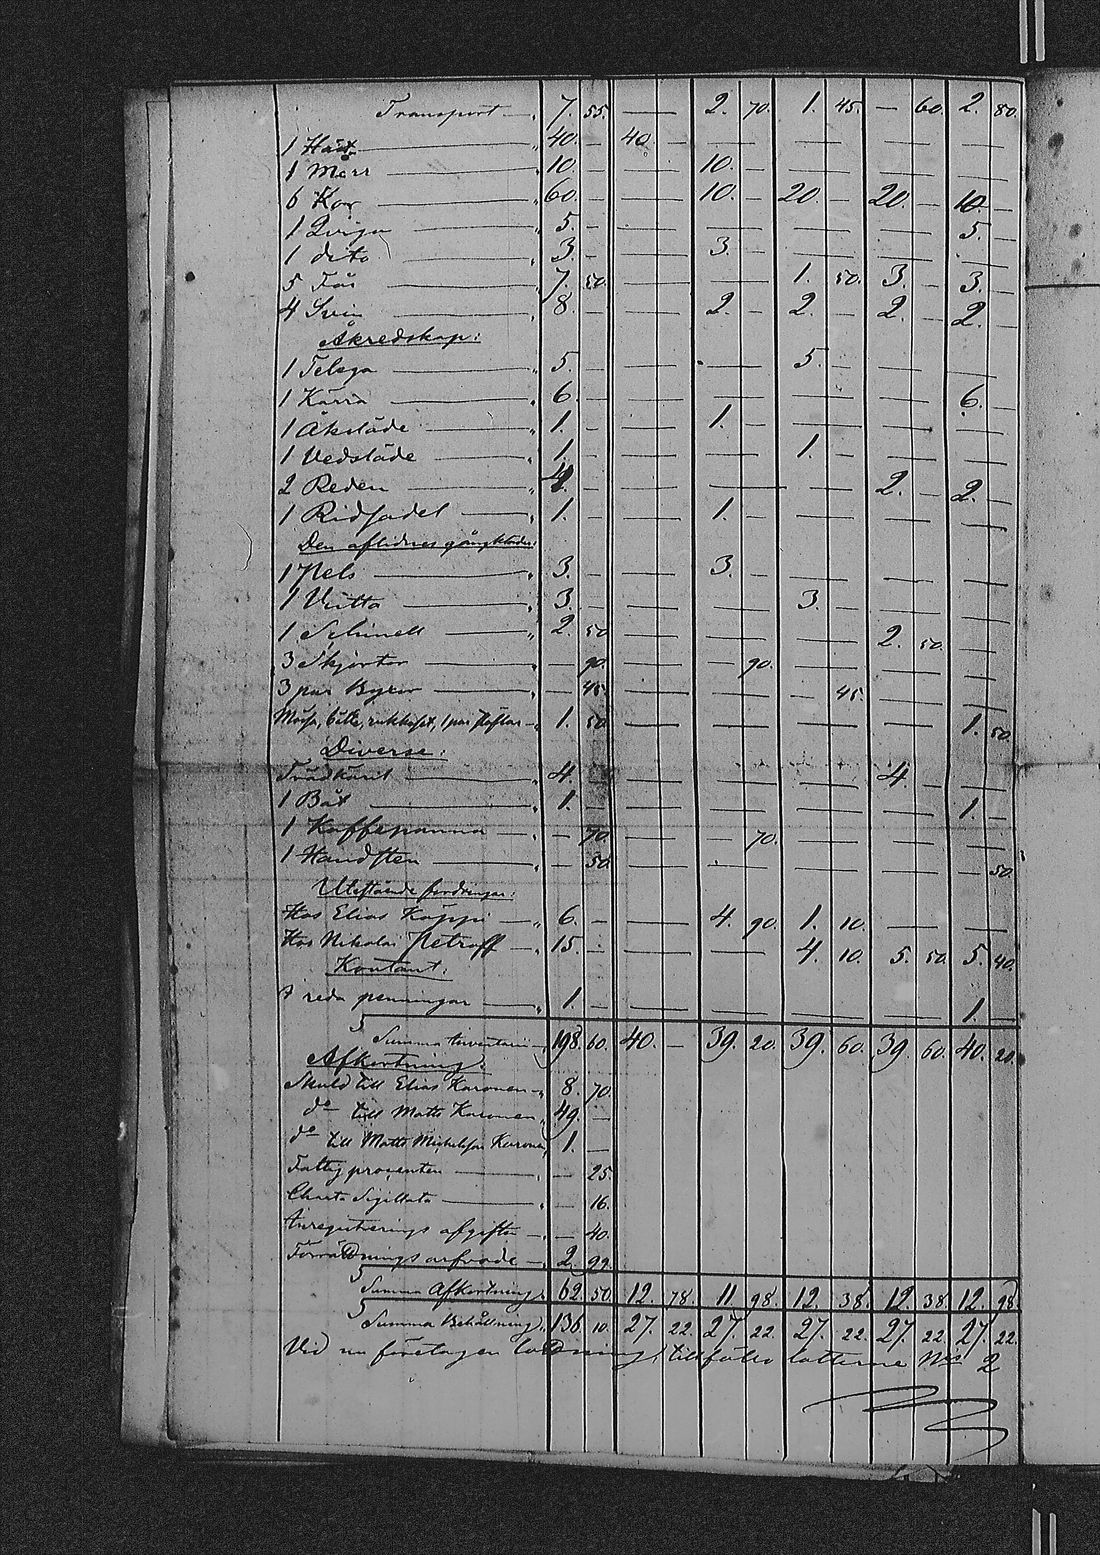 Transport — „ 7. 55. — 2. 70. 1. 45. — 60. 2. 80.
1 Häst — „ 40. — 40. — — — — —
1 Märr — „ 10. — — 10. — — — —
6 Kor — „ 60. — — 10. — 20. — 20. — 10. —
1 Qviga — „ 5. — — — — — 5. —
1 dito — „ 3. — — 3. — — — —
5 Får — „ 7. 50. — — 1. 50. 3. — 3. —
4 Svin — „ 8. — — 2. — 2. — 2. — 2. —
Åkredskap:
1 Telega — „ 5. — — — 5. — — —
1 Kärra — „ 6. — — — — — 6. —
1 Åksläde — „ 1. — — 1. — — — —
1 Vedsläde — „ 1. — — — 1. — — —
2 Reden — „ 4. — — — — 2. — 2. —
1 Ridsadel — „ 1. — — 1. — — — —
Den aflidnes gångkläder:
1 Pels — „ 3. — — 3. — — — —
1 — „ 3. — — — 3. — — —
1 — „ 2. 50 — — — 2. 50. —
3 Skjortor — „ — 90. — — 90. — — —
3 par Byxor — „ — 45. — — — 45. — —
1 par — „ 1. 50 — — — — 1. 50.
Diverse:
— „ 4. — — — — 4. — —
1 Båt — „ 1. — — — — — 1. —
1 Kaffepanna — „ — 70. — — 70. — — —
1 Handsten — „ — 50. — — — — — 50.
Utestående fordringar:
Hos Elias Käppi — „ 6. — — 4. 90. 1. 10. — —
Hos Nikolai Petroff — „ 15. — — — 4. 10. 5. 50. 5. 40.
Kontant:
I reda penningar — „ 1. — — — — — 1. —
Summa Inventarii — 198. 60. 40. — 39. 20. 39. 60. 39 60. 40. 20.
Afkortning:
Skuld till Elias Karonen „ 8. 70.
do till Matts Karonen „ 49. —
do till Matts Michelsson Karonen „ 1. —
Fattigprocenten — „ — 25.
Charta Sigillata — „ — 16.
Inregistrerings afgiften — „ — 40.
Förrättnings arfvode — „ 2. 99.
Summa Afkortning „ 62. 50. 12. 78. 11. 98. 12. 38. 12. 38. 12. 98.
Summa Behållning „ 136. 10. 27. 22. 27. 22. 27. 22. 27. 22. 27. 22.
Vid nu företagen lottning, tillföllo lotterne Nis 2